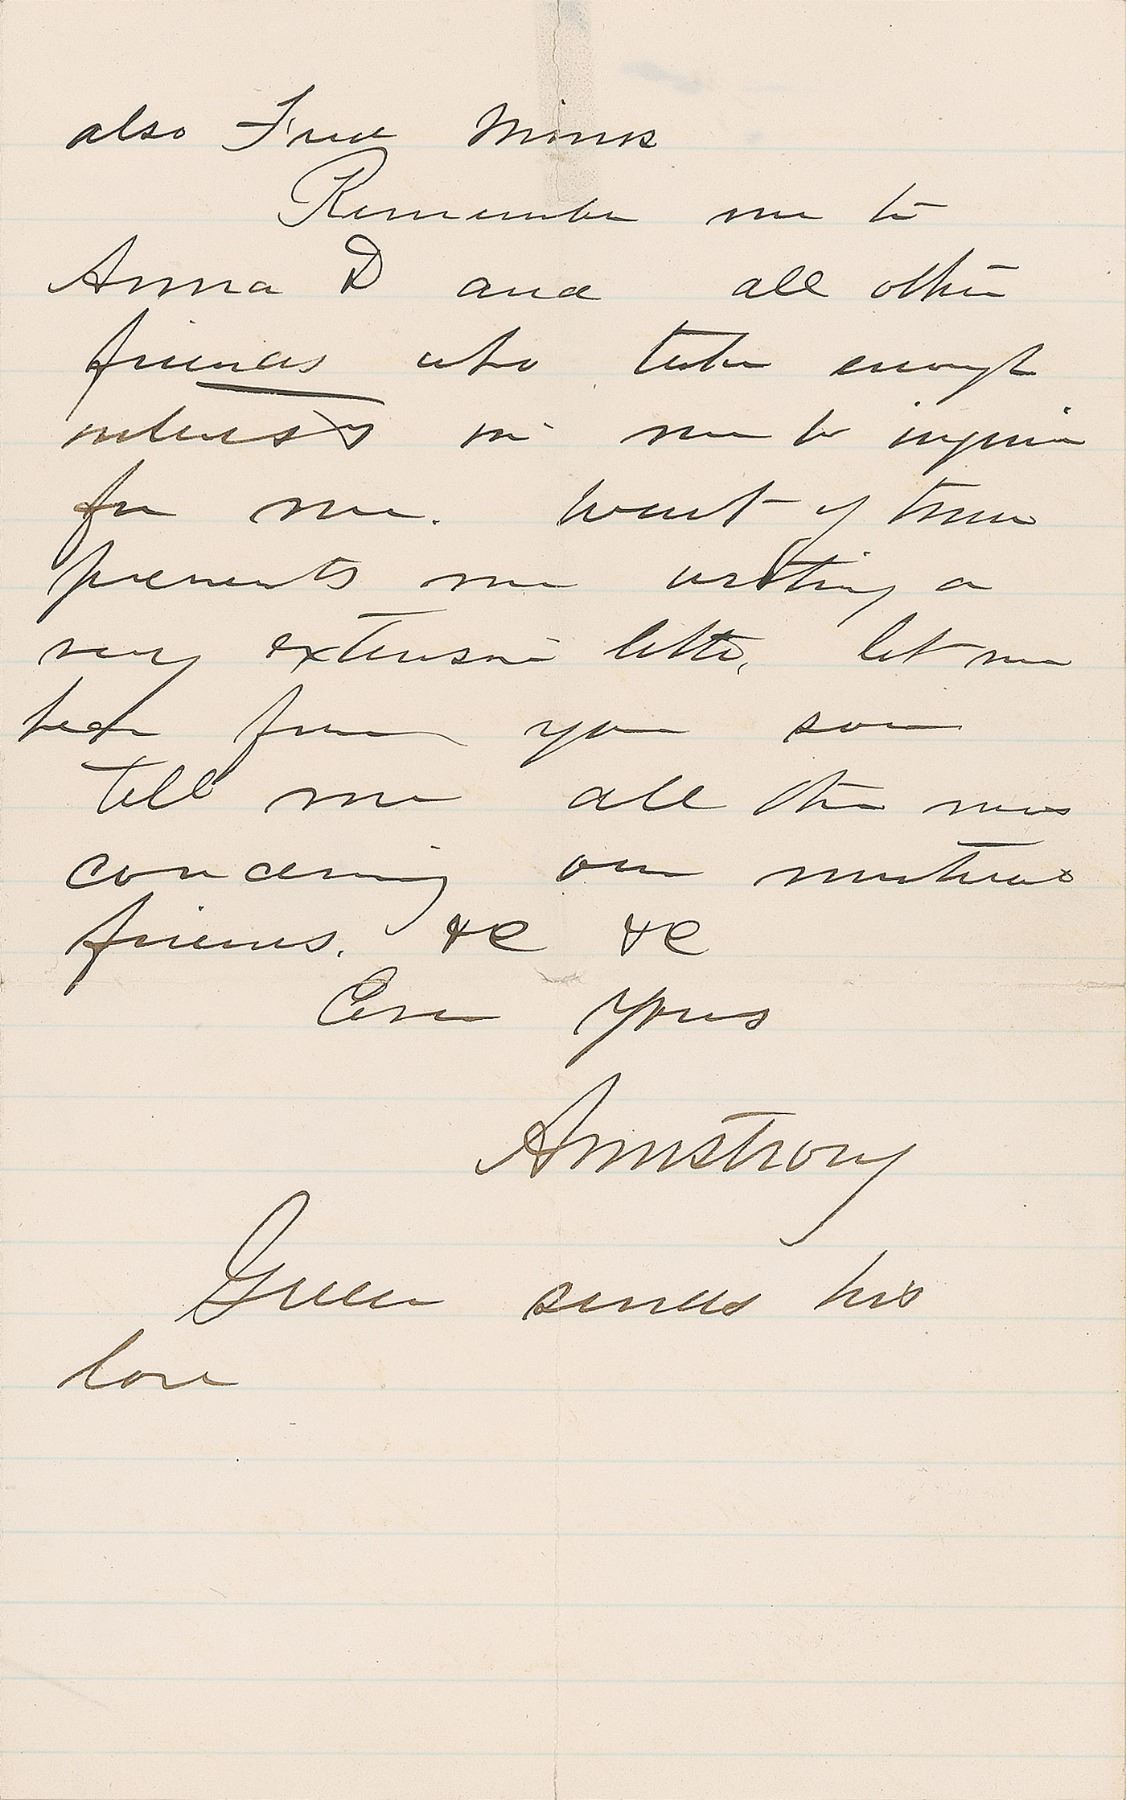 also Fred
Remember me to
Anna D and all other
friends who take enough
interest in me to inquire
for me. Want of time
prevents me writing a
very extensive letter, let me
hear from you soon
tell me all the news
concerning our mutual
friends. &c &c
Ever Yours
Armstrong
Green sends his
love